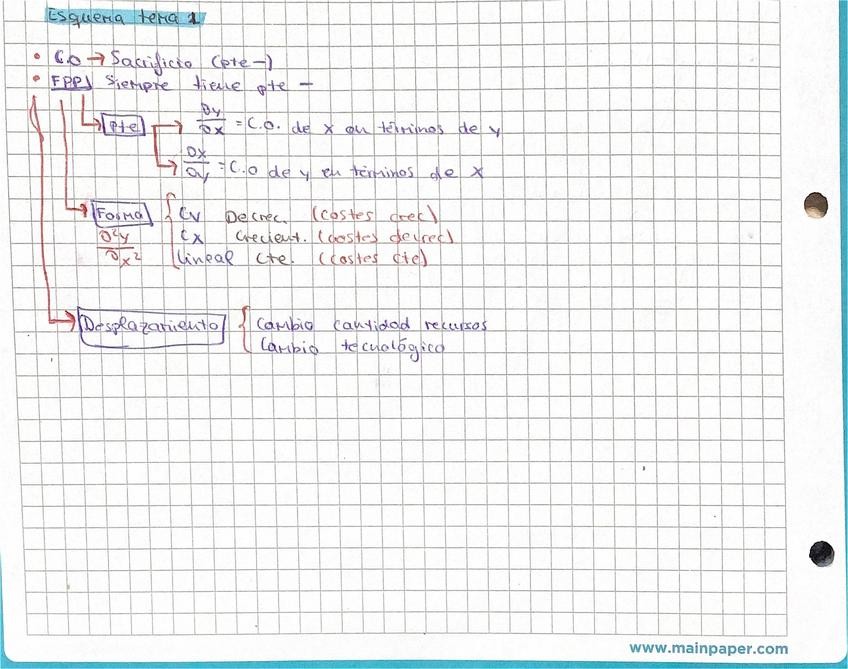 Esquema tema 1
• C.O → Sacrificio (pte -)
• FPP siempre tiene pte -
Pte → ∂y/∂x = C.O. de x en términos de y
→ ∂x/∂y = C.O de y en términos de x
Forma { Cv Decrec. (costes crec)
∂²y/∂x² Cx Crecient. (costes decrec)
Lineal Cte. (costes cte)
Desplazamiento { Cambio cantidad recursos
Cambio tecnológico
www.mainpaper.com